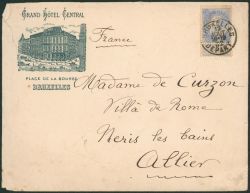 GRAND HÔTEL CENTRAL
PLACE DE LA BOURSE
BRUXELLES
France
Madame de Curzon
Villa de Rome
Neris les bains
Allier